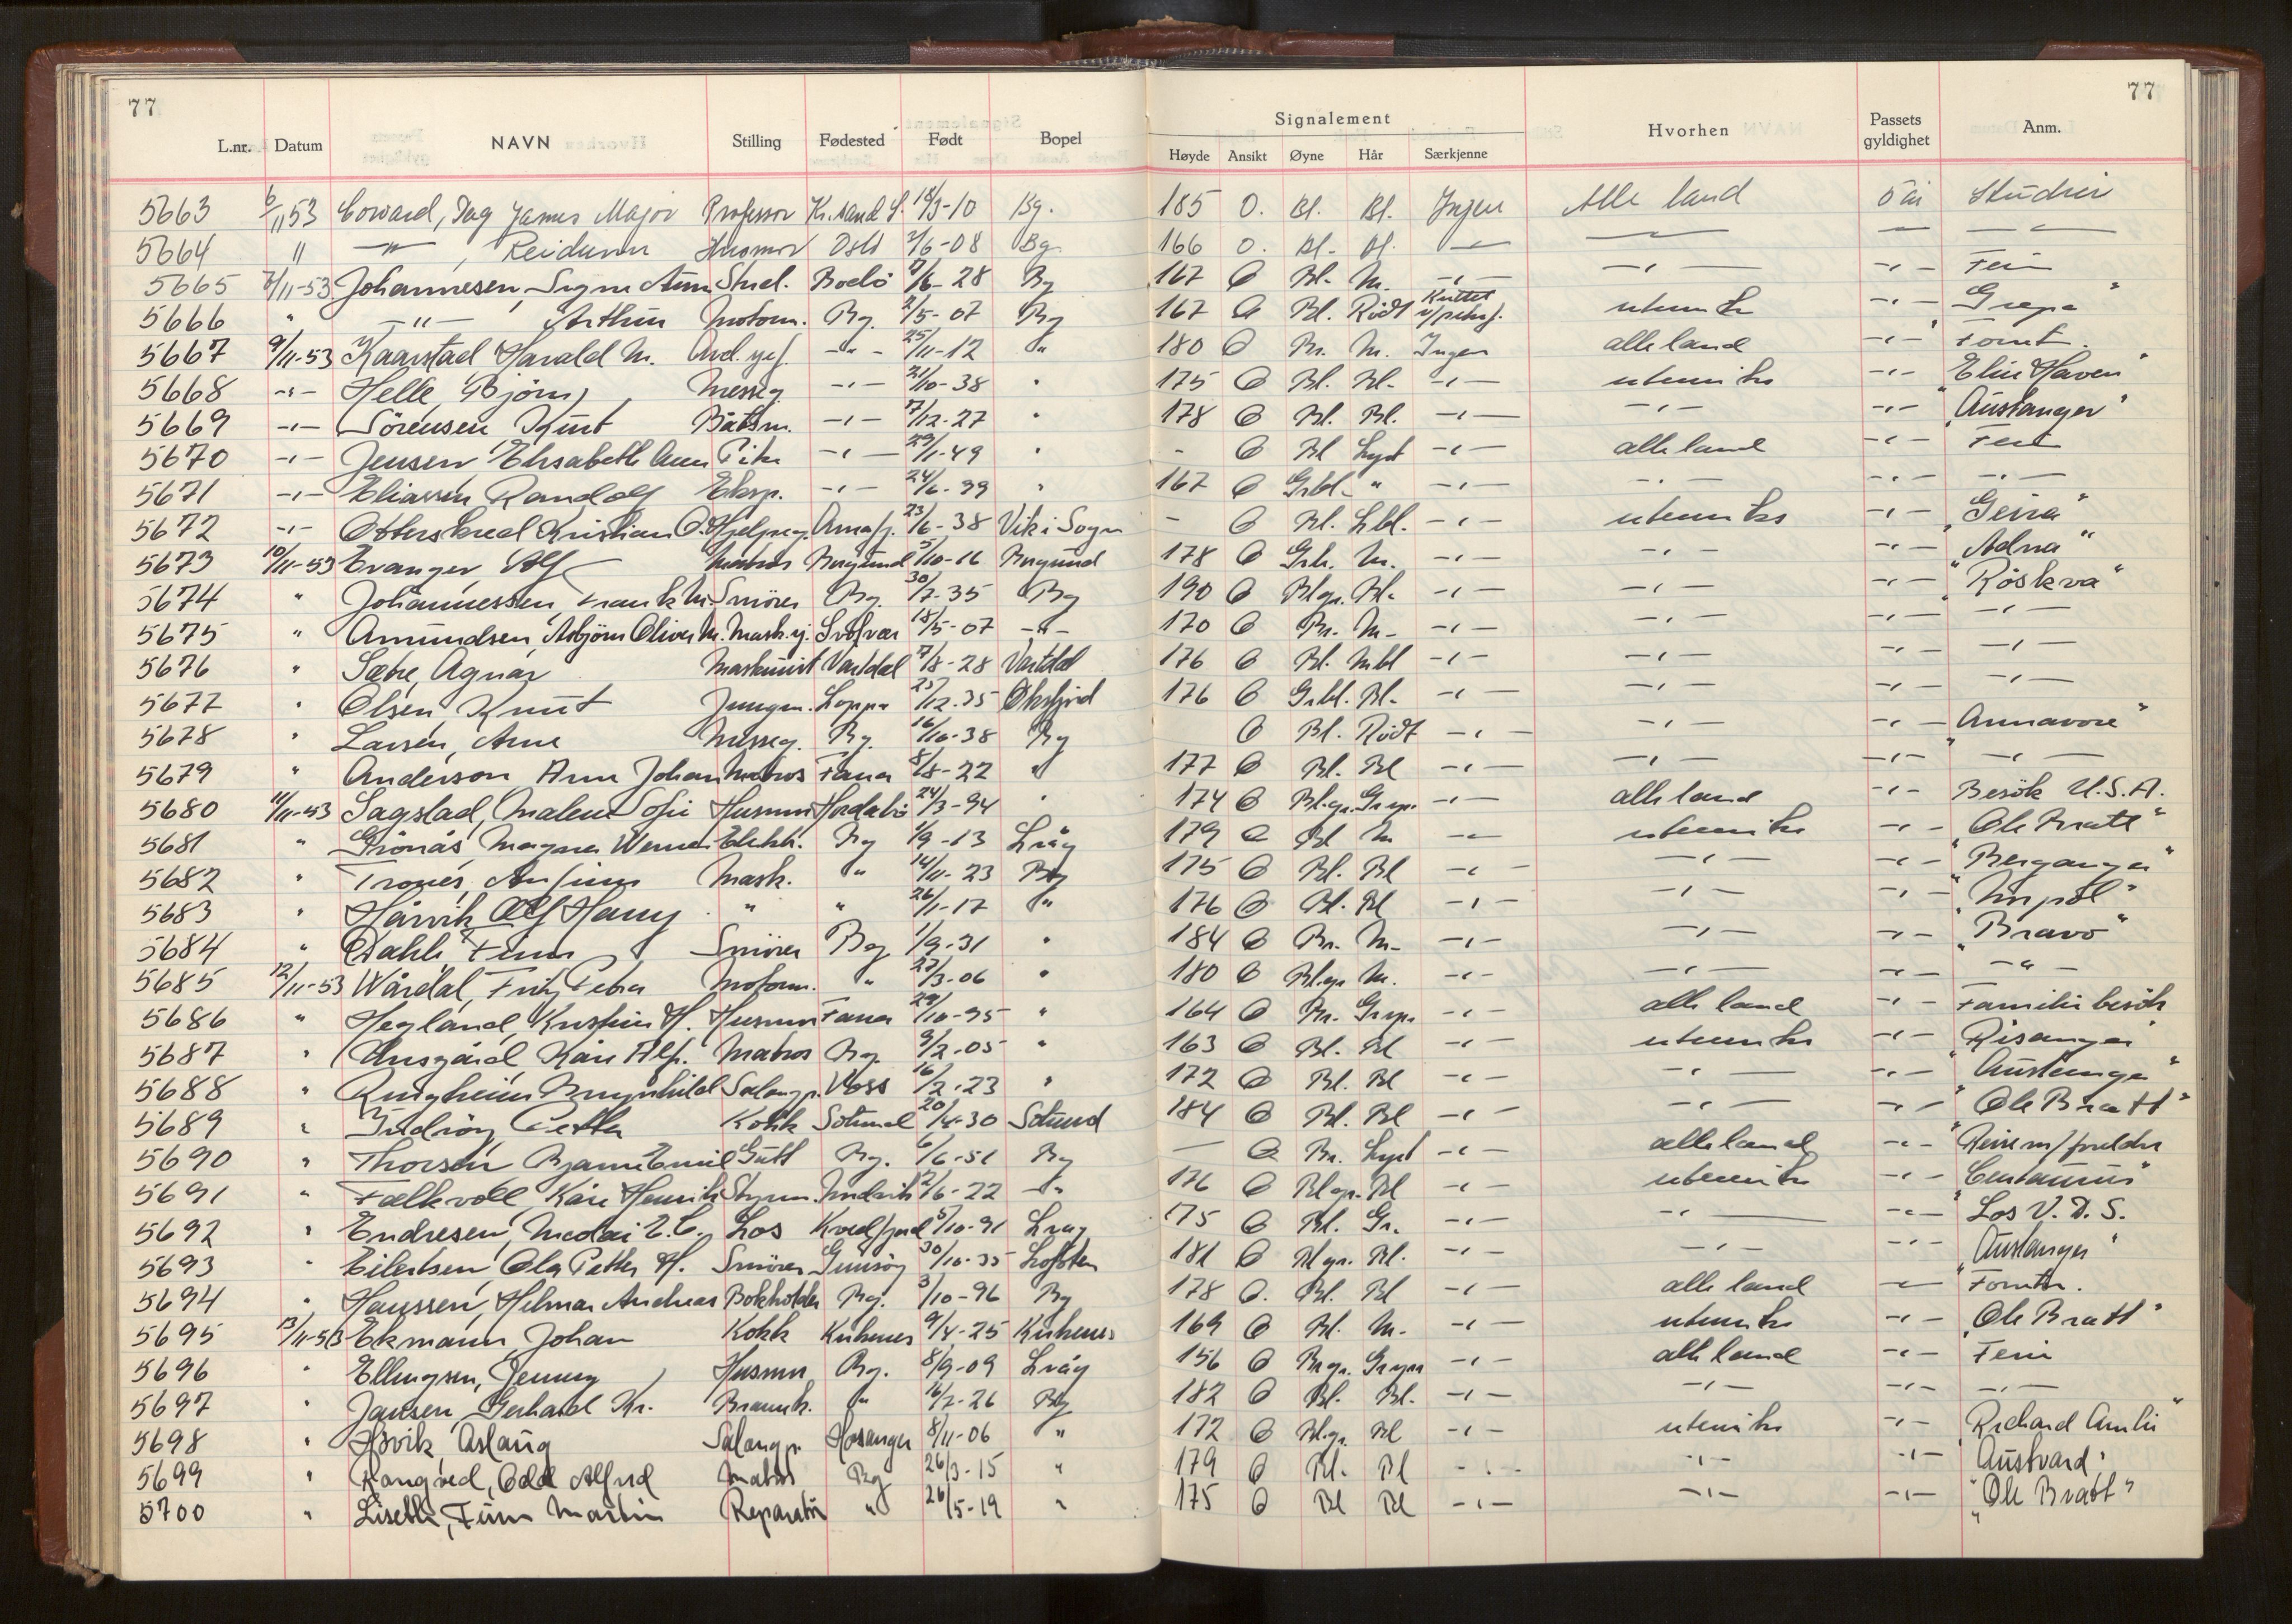 77
77
Signalement
L.nr. Datum NAVN Stilling Fødested Født Bopel Høyde Ansikt Øyne Hår Særkjenne Hvorhen Passets gyldighet Anm.
5663 6/11 53 Coward, Dag James Major Professor Kr.sand S. 18/3-10 Bg. 185 O. Bl. Bl. Ingen Alle land 5 år Studier
5664 " —"— , Reidunn Husmor Oslo 2/6-08 Bg. 166 O. Bl. Bl. — — — —
5665 7/11-53 Johannesen, Signe Ann Stud. Bodö 7/6-28 Bg 167 O Bl. M. -"- -"- -"- Ferie
5666 " —"— Arthur Motorm. Bg. 2/5-07 Bg 167 O Bl. Rödt utenriks -"- "Grepa"
5667 9/11-53 Kaarstad Harald M. Avd. sjef. -"- 25/11-12 " 180 O Br. M. Ingen alle land -"- Forretn.
5668 -"- Helle, Björn, Messeg. -"- 21/10-38 " 175 O Bl. Bl. -"- utenriks -"- "Elin Haven"
5669 -"- Sörensen Knut Båtsm. -"- 7/12-27 " 178 O Bl. Bl. -"- -"- -"- "Austanger"
5670 -"- Jensen Elisabeth Ann Pike -"- 29/1-49 " - O Bl Lyst -"- alle land -"- Ferie
5671 -"- Eliassen Randolf Eksp. -"- 24/6-99 " 167 O Grbl. " -"- -"- -"- -"-
5672 -"- Otterskred Kristian O. Hjelpeg. Arnafj. 23/6-38 Vik i Sogn - O Bl. Lbl. -"- utenriks -"- "Geira"
5673 10/11-53 Evanger Alf Matros Borgund 5/10-16 Borgund 178 O Grbr. M. -"- -"- -"- "Adna"
5674 " Johannessen, Frank M. Smörer Bg. 30/7-35 Bg 190 O Blgr. Bl. -"- -"- -"- "Röskva"
5675 " Amundsen, Asbjörn Oliver M. Mask.sj. Svolvær 18/5-07 -"- 170 O Br. M. -"- -"- -"- -"-
5676 " Sætre, Agnar Maskinist Vartdal 7/8-28 Vartdal 176 O Bl. Mbl -"- -"- -"- -"-
5677 " Olsen, Knut Jungm. Loppa 25/12-35 Öksfjord 176 O Grbl. Bl. -"- -"- -"- -"-
5678 " Larsen, Arne Messeg. Bg. 16/10-38 Bg O Bl. Rödt -"- -"- -"- "Annavore"
5679 " Anderson Arne Johan Matros Fana 8/8-22 " 177 O Bl. Bl -"- -"- -"- -"-
5680 11/11-53 Sagstad, Malene Sofie Husmor Hordabö 24/3-94 " 174 O Blgr. Grspr. -"- alle land -"- Besök U.S.A.
5681 " Grönås Magnar Werner Elektr. Bg 1/9-13 Lvåg 179 O Bl M -"- utenriks -"- "Ole Bratt"
5682 " Tronés, Mask. " 14/11-23 Bg 175 O Bl. Bl -"- -"- -"- "Berganger"
5683 " Hårvik Alf Harry " " 26/1-17 " 176 O Bl. Bl -"- -"- -"-
5684 " Dahle Finn Smörer Bg 1/9-31 " 184 O Br. M. -"- -"- -"- "Bravo"
5685 12/11-53 Wårdal, Fritz Peter Motorm. " 27/3-06 " 180 O Blgr M. -"- -"- -"- -"-
5686 " Hegland, Kristine H. Husmor Fana 29/10-95 " 164 O Br. Grspr. -"- alle land -"- Familie besök
5687 " Ansgård, Kåre Alf. Matros Bg. 9/2-05 " 163 O Bl. Bl -"- utenriks -"- "Risanger"
5688 " Ringheim Brynhild Salongp. Voss 16/2-23 " 172 O Bl. Bl -"- -"- -"- "Austanger"
5689 " Indröy, Kokk Solund 20/4-30 Solund 184 O Bl. Bl -"- -"- -"- "Ole Bratt"
5690 " Thorsen Bjarne Emil Gutt Bg. 6/6-51 Bg — O Br. Lyst -"- alle land -"- Reise m/foreldre
5691 " Falkvoll, Kåre Henrik Styrm. 12/6-22 -"- 176 O Blgr. Bl -"- utenriks -"- "Centaurus"
5692 " Endresen, Nicolai E.C. Los Kvedfjord 5/10-91 Lvåg 175 O Bl. Gr. -"- -"- -"- "Los V.D.S.
5693 " Eilertsen Ola Petter H. Smörer Gimsöy 30/10-35 Lofoten 181 O Blgr. Bl. -"- -"- -"- "Austanger"
5694 " Hanssen, Helmer Andreas Bokholder Bg. 3/10-96 Bg 178 O. Bl. Bl -"- alle land — Forretn.
5695 13/11-53 Ekmann, Johan Kokk Kirkenes 9/4-25 Kirkenes 169 O Bl. M. -"- utenriks -"- "Ole Bratt"
5696 " Ellingsen, Jenny Husmor Bg. 8/9-09 Lvåg 156 O Brgr. Grspr -"- alle land -"- Ferie
5697 " Jansen Gerhard Kr. Brannk. " 16/7-26 Bg 182 O Bl. Bl. -"- -"- -"- -"-
5698 " Hövik, Aslaug Salongp. Hosanger 8/11-06 " 172 O Blgr. Bl -"- utenriks -"- "Richard Amlie"
5699 " Rongved, Odd Alfred Matros Bg 26/3-15 " 179 O Bl. Bl -"- -"- -"- "Austvard"
5700 " Liseth, Finn Martin Reparatör " 26/5-19 " 175 O Bl Bl -"- -"- -"- "Ole Bratt"